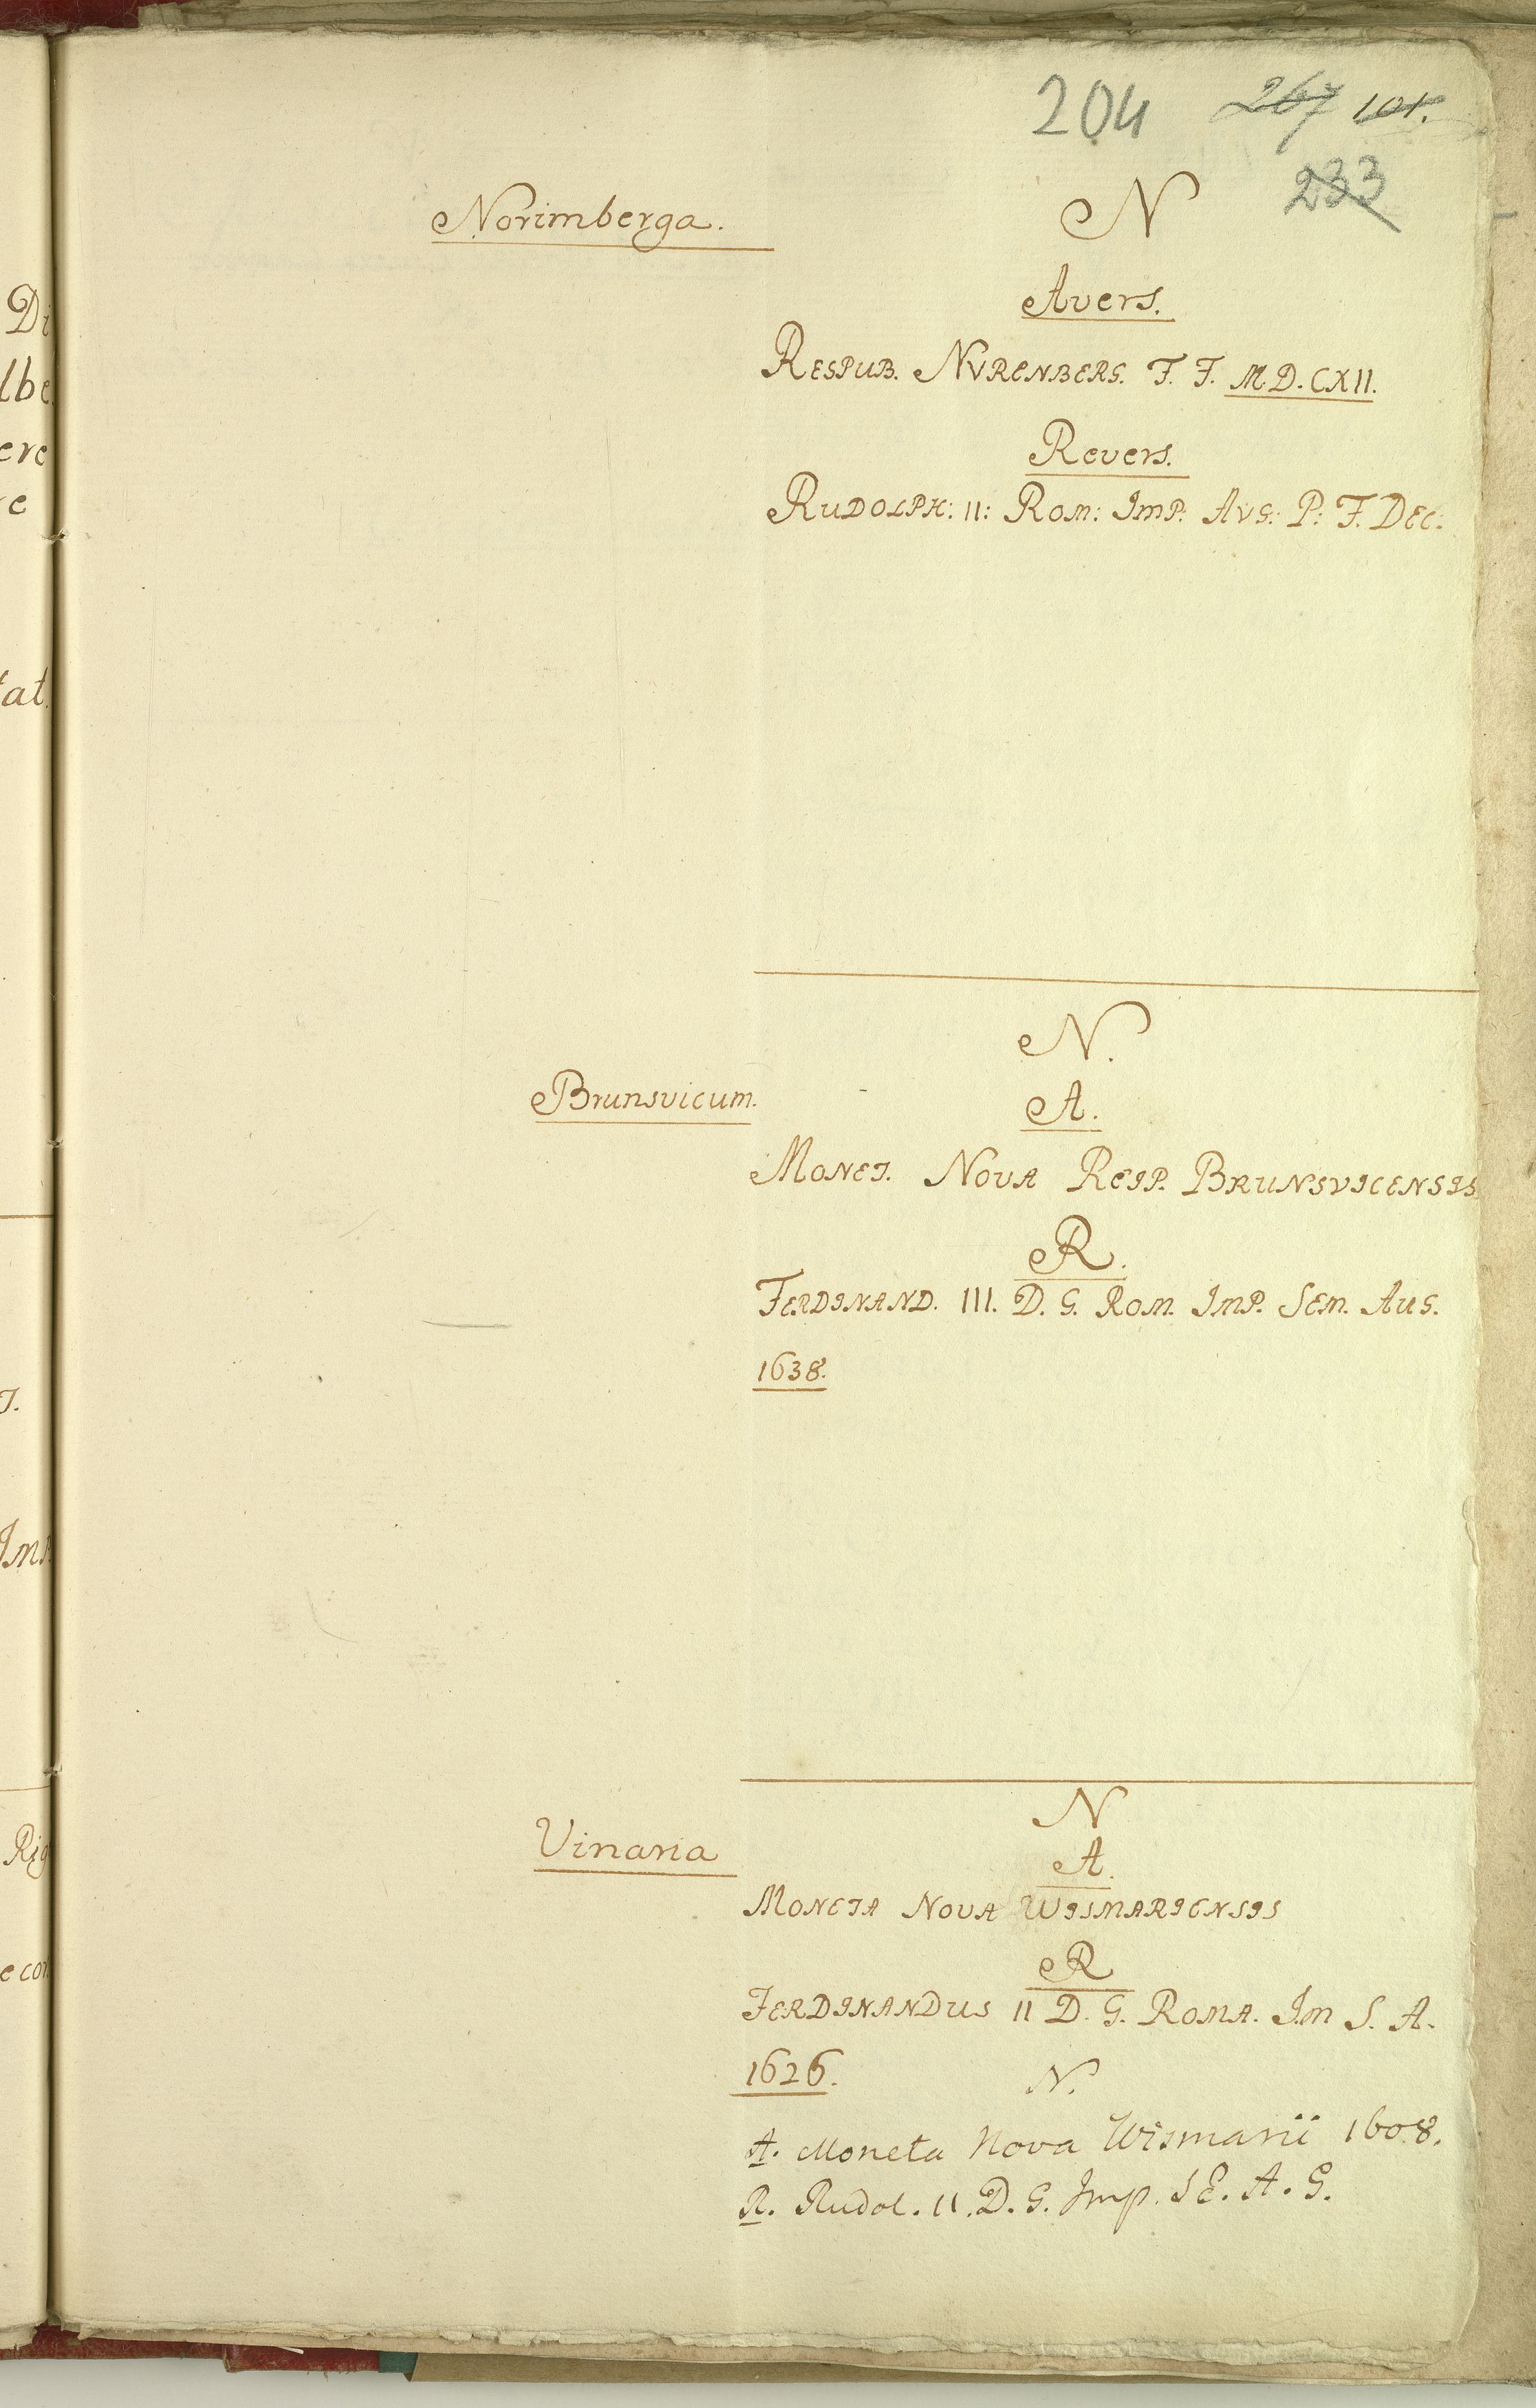 204 267 101.
233
Norimberga.
N
Avers.
RESPUB. NVRENBERG. F. F. M.D.CXII.
Revers.
RUDOLPH: II: ROM: IMP: AVG: P: F. DEC:
N.
Brunsvicum.
A.
MONET. NOVA REIP. BRUNSVICENSIS
R.
FERDINAND. III. D. G. ROM. IMP. SEM. AUG.
1638.
N
Vinaria
A.
MONETA NOVA WISMARIENSIS
R
FERDINANDUS II D. G. ROMA. IM S. A.
1626.
N.
A. Moneta Nova Wismarii 1608.
R. Rudol. II. D. G. Imp. SE. A. G.